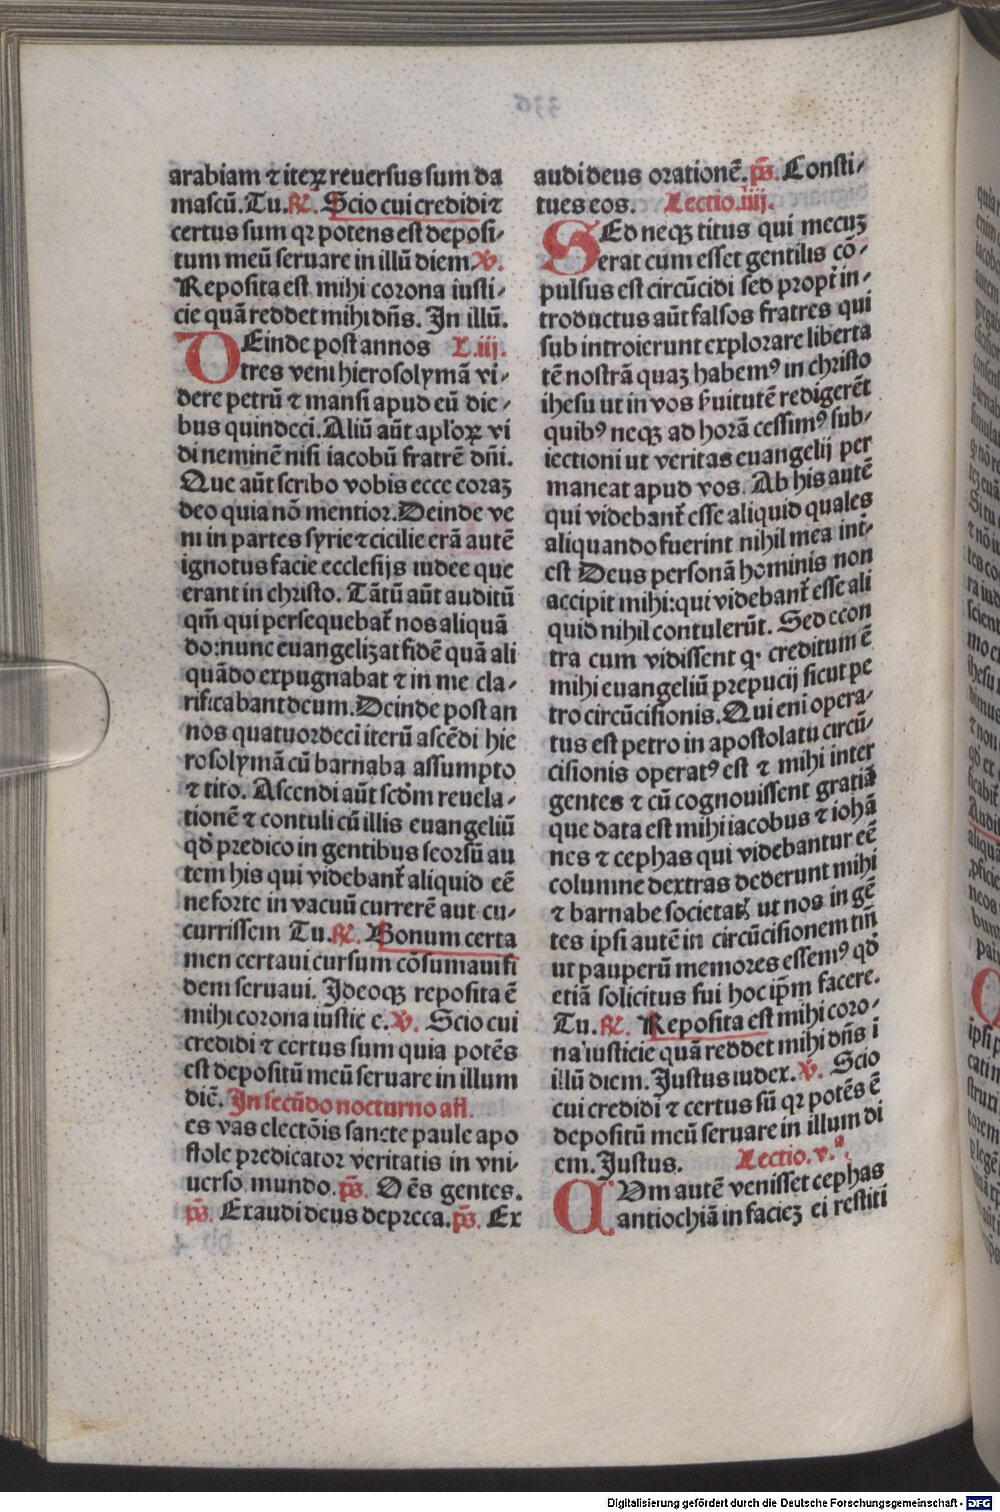 arabiam ⁊ iteꝝ reuersus sum da
mascū. Tu. ℟. Scio cui credidi ⁊
certus sum qꝛ potens est deposi-
tum meū seruare in illū diem ℣.
Reposita est mihi corona iusti-
cie quā reddet mihi dn̄s. In illū.
DEinde post annos L.iij.
tres veni hierosolymā vi-
dere petrū ⁊ mansi apud eū die-
bus quindeci. Aliū aūt apl'oꝝ vi
di neminē nisi iacobū fratrē dñi.
Que aūt scribo vobis ecce coraꝫ
deo quia nō mentior. Deinde ve
ni in partes syrie ⁊ cicilie erā autē
ignotus facie ecclesijs iudee que
erant in christo. Tātū aūt auditū
qm̄ qui persequebat̄ nos aliquā
do: nunc euangelizat fidē quā ali
quādo expugnabat ⁊ in me cla-
rificabant deum. Deinde post an
nos quatuordeci iterū ascēdi hie
rosolymā cū barnaba assumpto
⁊ tito. Ascendi aūt scd̄m reuela-
tionē ⁊ contuli cū illis euangeliū
qd̄ predico in gentibus seorsū au
tem his qui videbant̄ aliquid eē
ne forte in vacuū currerē aut cu-
currissem Tu. ℟. Bonum certa
men certaui cursum cōsumaui fi
dem seruaui. Ideoqꝫ reposita ē
mihi corona iusticie. ℣. Scio cui
credidi ⁊ certus sum quia potēs
est depositū meū seruare in illum
diē. In secūdo nocturno an̄.
es vas electōis sancte paule apo
stole predicator veritatis in vni-
uerso mundo. pš. Oēs gentes.
pš. Exaudi deus depreca. pš. Ex
audi deus orationē. pš. Consti-
tues eos. Lectio.iiij.
SEd neqꝫ titus qui mecuꝫ
erat cum esset gentilis cō-
pulsus est circūcidi sed propt̄ in-
troductus aūt falsos fratres qui
subintroierunt explorare liberta
tē nostrā quaꝫ habemꝰ in christo
ihesu ut in vos s̄uitutē redigerēt
quibꝰ neqꝫ ad horā cessimꝰ sub-
iectioni ut veritas euangelij per
maneat apud vos. Ab his autē
qui videbant̄ esse aliquid quales
aliquando fuerint nihil mea int̄-
est Deus personā hominis non
accipit mihi: qui videbant̄ esse ali
quid nihil contulerūt. Sed econ
tra cum vidissent qꝫ creditum ē
mihi euangeliū prepucij sicut pe
tro circūcisionis. Qui eni opera-
tus est petro in apostolatu circū-
cisionis operatꝰ est ⁊ mihi inter
gentes ⁊ cū cognouissent gratiā
que data est mihi iacobus ⁊ iohā
nes ⁊ cephas qui videbantur eē
columne dextras dederunt mihi
⁊ barnabe societatꝭ ut nos in gē
tes ipsi autē in circūcisionem tm̄
ut pauperū memores essemꝰ qd̄
etiā solicitus fui hoc ip̄m facere.
Tu. ℟. Reposita est mihi coro-
na iusticie quā reddet mihi dn̄s ī
illū diem. Iustus iudex. ℣. Scio
cui credidi ⁊ certus sū qꝛ potēs ē
depositū meū seruare in illum di
em. Iustus. Lectio.v.ª.
CUm autē venisset cephas
antiochiā in facieꝫ ei restiti
Digitalisierung gefördert durch die Deutsche Forschungsgemeinschaft - DFG